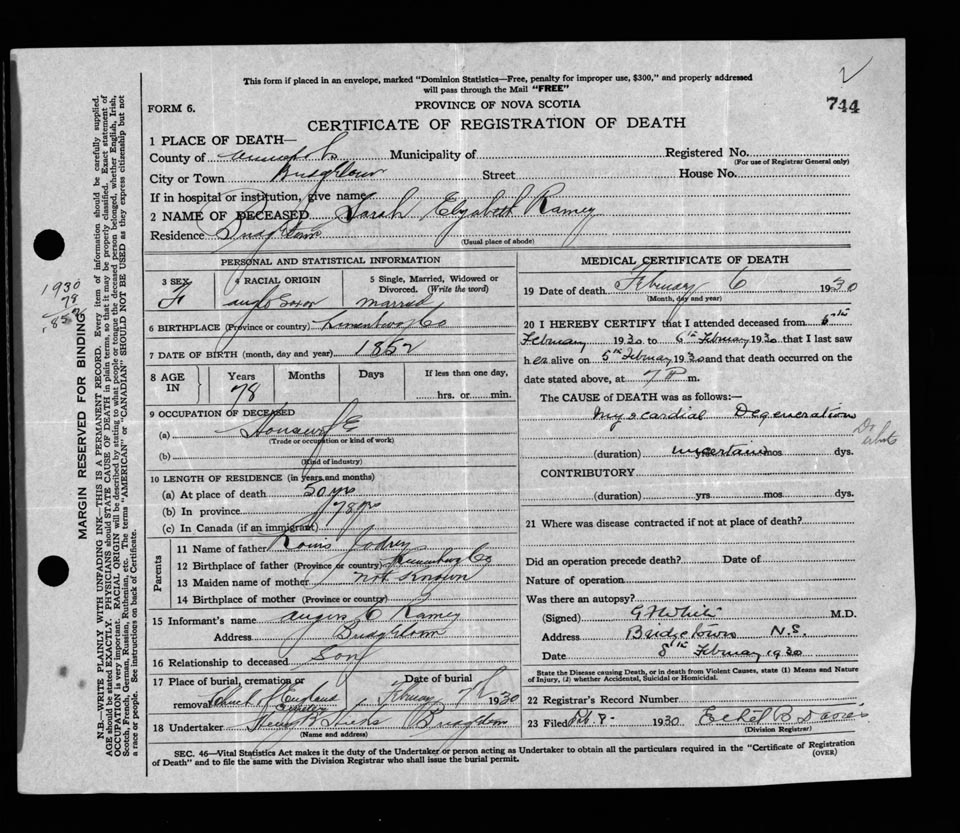 This form if placed in an envelope, marked "Dominion Statistics—Free, penalty for improper use, $300," and properly addressed
will pass through the Mail "FREE"
FORM 6.
PROVINCE OF NOVA SCOTIA
744
CERTIFICATE OF REGISTRATION OF DEATH
1 PLACE OF DEATH—
County of Annapolis Municipality of Registered No.
(For use of Registrar General only)
City or Town Bridgetown Street House No.
If in hospital or institution, give name
2 NAME OF DECEASED Sarah Elizabeth Ramey
Residence Bridgetown
(Usual place of abode)
PERSONAL AND STATISTICAL INFORMATION
3 SEX F
4 RACIAL ORIGIN Anglo Saxon
5 Single, Married, Widowed or Divorced. (Write the word) Married
6 BIRTHPLACE (Province or country) Lunenburg Co
7 DATE OF BIRTH (month, day and year) 1852
8 AGE IN Years Months Days If less than one day,
78 hrs. or min.
9 OCCUPATION OF DECEASED
(a) Housewife
(Trade or occupation or kind of work)
(b)
(Kind of industry)
10 LENGTH OF RESIDENCE (in years and months)
(a) At place of death 50 yrs
(b) In province 78 yrs
(c) In Canada (if an immigrant)
Parents
11 Name of father Jodrey
12 Birthplace of father (Province or country) Lunenburg Co
13 Maiden name of mother not known
14 Birthplace of mother (Province or country)
15 Informant's name Ramey
Address Bridgetown
16 Relationship to deceased Son
17 Place of burial, cremation or removal Church of England Cemetery
Date of burial February 1930
18 Undertaker Henry B Hicks Bridgetown
(Name and address)
MEDICAL CERTIFICATE OF DEATH
19 Date of death February 6 1930
(Month, day and year)
20 I HEREBY CERTIFY that I attended deceased from 5th
February 1930 to 6th February 1930 that I last saw
her alive on 5th February 1930 and that death occurred on the
date stated above, at 7 P m.
The CAUSE of DEATH was as follows:—
Myocardial Degeneration
(duration) uncertain yrs mos dys.
CONTRIBUTORY
(duration) yrs mos dys.
21 Where was disease contracted if not at place of death?
Did an operation precede death? Date of
Nature of operation
Was there an autopsy?
(Signed) M.D.
Address Bridgetown N.S.
Date 8th February 1930
State the Disease causing Death, or in death from Violent Causes, state (1) Means and Nature
of Injury, (2) whether Accidental, Suicidal or Homicidal.
22 Registrar's Record Number
23 Filed Feb. 8 1930 Ethel B Davies
(Division Registrar)
SEC. 46—Vital Statistics Act makes it the duty of the Undertaker or person acting as Undertaker to obtain all the particulars required in the "Certificate of Registration
of Death" and to file the same with the Division Registrar who shall issue the burial permit.
(OVER)
MARGIN RESERVED FOR BINDING
N.B.—WRITE PLAINLY WITH UNFADING INK—THIS IS A PERMANENT RECORD. Every item of information should be carefully supplied.
AGE should be stated EXACTLY. PHYSICIANS should STATE CAUSE OF DEATH in plain terms, so that it may be properly classified. Exact statement of
OCCUPATION is very important. RACIAL ORIGIN will be described by stating to what people or tongue the deceased person belonged, whether English, Irish,
Scotch, French, German, Russian, Ruthenian, etc. The terms "AMERICAN" or "CANADIAN" SHOULD NOT BE USED as they express citizenship but not
a race or people. See instructions on back of Certificate.
1930
78
1852